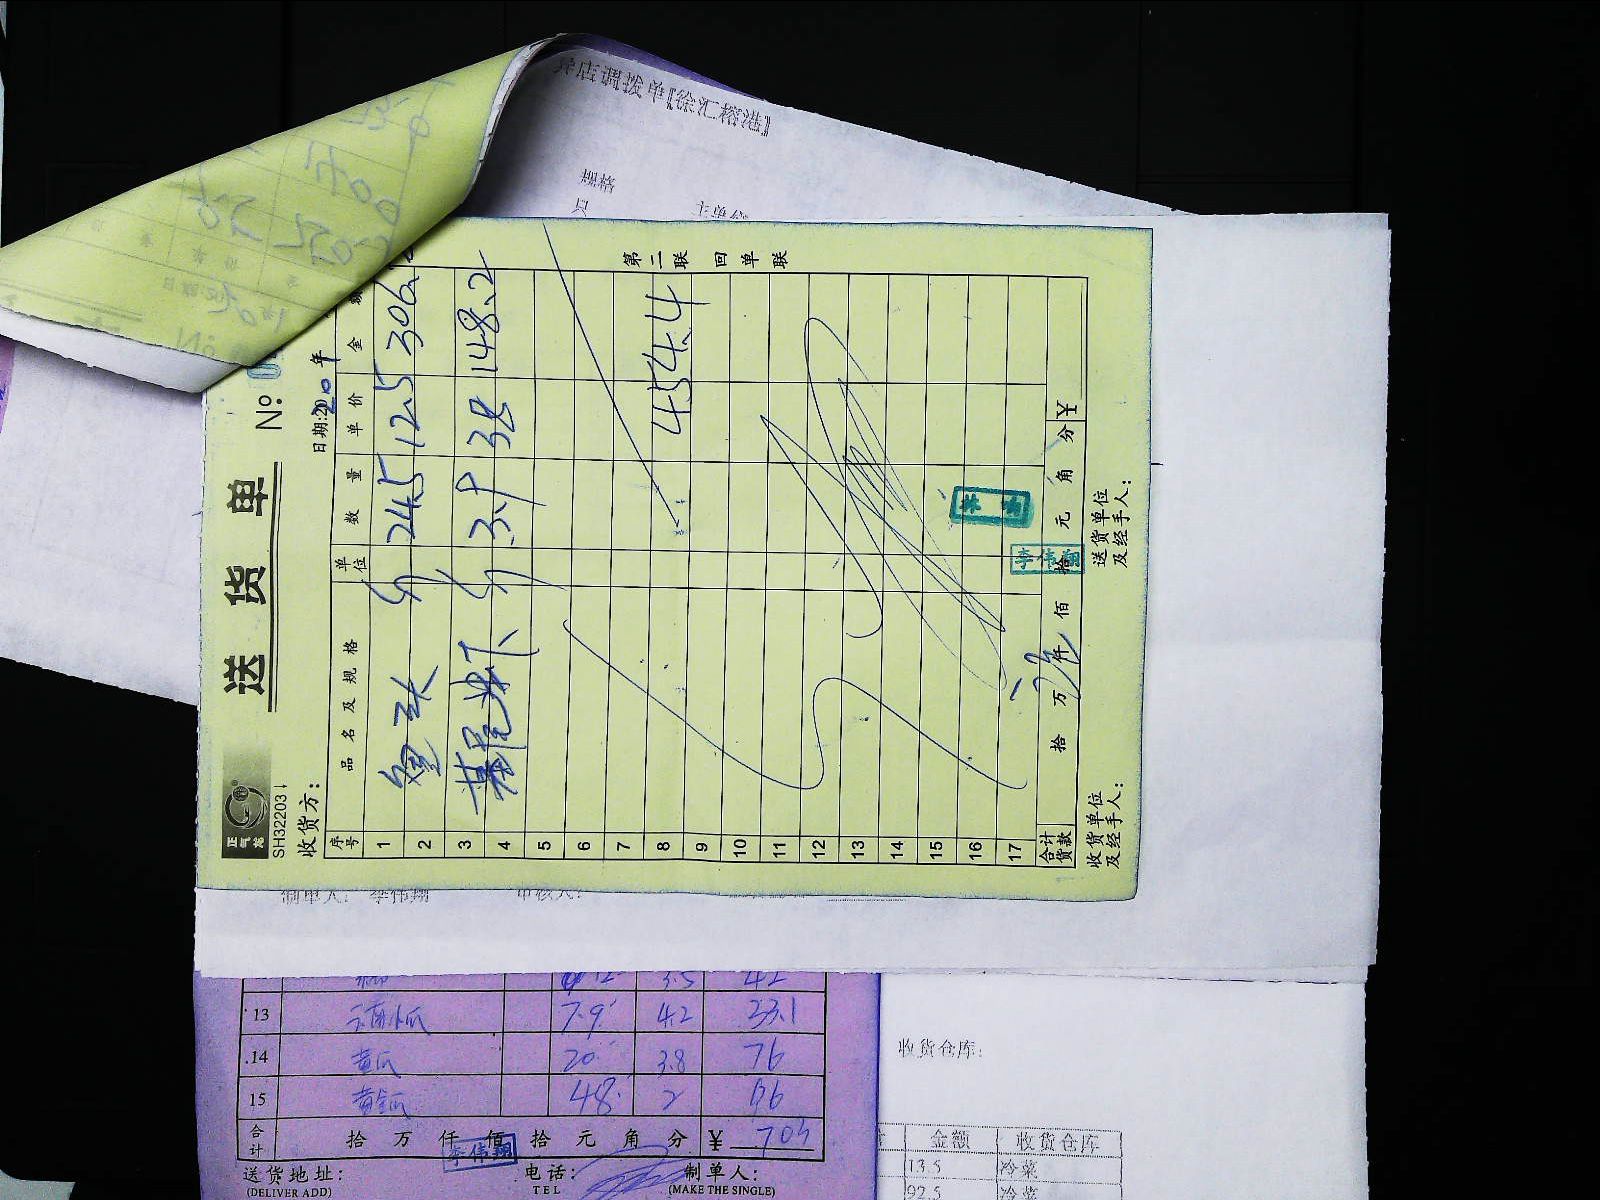 店调拨单【徐汇榕港】
送货单
No:
正气龙
SH32203
收货方:
日期:2020年
第二联 回单联
序号 品名及规格 单位 数量 单价 金额
1 24.5 12.5 306.
2
3 基尾虾 3.9 38 148.2
4
5
6
7
8 454.4
9
10
11
12
13
14
15
16
17
合计货款 拾 万 仟 佰 拾 元 角 分 ¥
李伟翔
收货单位及经手人:
送货单位及经手人:
制单人: 李伟翔 审核人:
12 3.5 42
13 7.9 4.2 33.1
14 黄瓜 20 3.8 76
15 黄金瓜 48 2 96
合计 拾 万 仟 佰 拾 元 角 分 ¥ 703
李伟翔
送货地址: 电话: 制单人:
(DELIVER ADD) TEL (MAKE THE SINGLE)
收货仓库:
金额 收货仓库
13.5 冷菜
92.5 冷菜